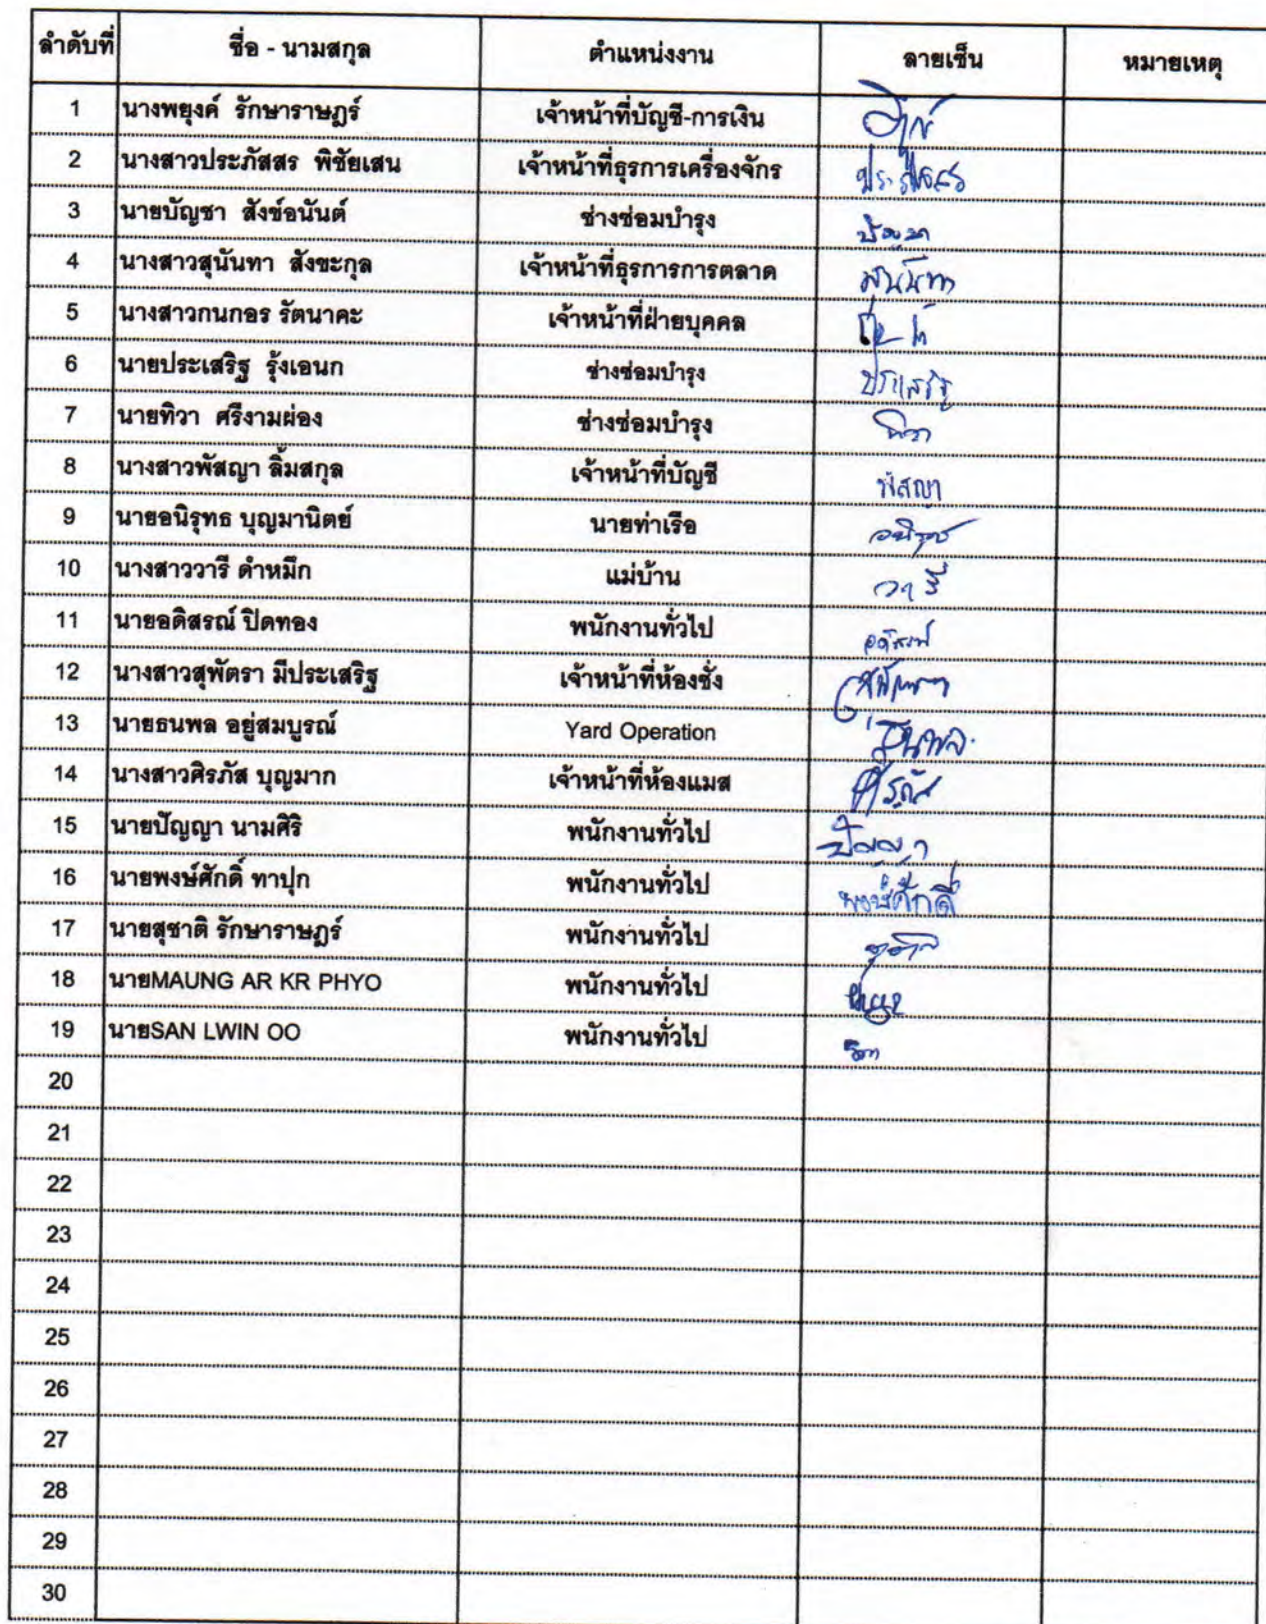 ลำดับที่ ชื่อ - นามสกุล ตำแหน่งงาน ลายเซ็น หมายเหตุ
1 นางพยุงค์ รักษาราษฎร์ เจ้าหน้าที่บัญชี-การเงิน
2 นางสาวประภัสสร พิชัยเสน เจ้าหน้าที่ธุรการเครื่องจักร ประภัสสร
3 นายบัญชา สังข์อนันต์ ช่างซ่อมบำรุง บัญชา
4 นางสาวสุนันทา สังขะกุล เจ้าหน้าที่ธุรการการตลาด สุนันทา
5 นางสาวกนกอร รัตนาคะ เจ้าหน้าที่ฝ่ายบุคคล
6 นายประเสริฐ รุ้งเอนก ช่างซ่อมบำรุง ประเสริฐ
7 นายทิวา ศรีงามผ่อง ช่างซ่อมบำรุง ทิวา
8 นางสาวพัสญา ลิ้มสกุล เจ้าหน้าที่บัญชี พัสญา
9 นายอนิรุทธ บุญมานิตย์ นายท่าเรือ อนิรุทธ
10 นางสาววารี ดำหมึก แม่บ้าน วารี
11 นายอดิสรณ์ ปิดทอง พนักงานทั่วไป อดิสรณ์
12 นางสาวสุพัตรา มีประเสริฐ เจ้าหน้าที่ห้องชั่ง สุพัตรา
13 นายธนพล อยู่สมบูรณ์ Yard Operation ธนพล
14 นางสาวศิรภัส บุญมาก เจ้าหน้าที่ห้องแมส ศิรภัส
15 นายปัญญา นามศิริ พนักงานทั่วไป ปัญญา
16 นายพงษ์ศักดิ์ ทาปุก พนักงานทั่วไป พงษ์ศักดิ์
17 นายสุชาติ รักษาราษฎร์ พนักงานทั่วไป สุชาติ
18 นายMAUNG AR KR PHYO พนักงานทั่วไป
19 นายSAN LWIN OO พนักงานทั่วไป
20
21
22
23
24
25
26
27
28
29
30